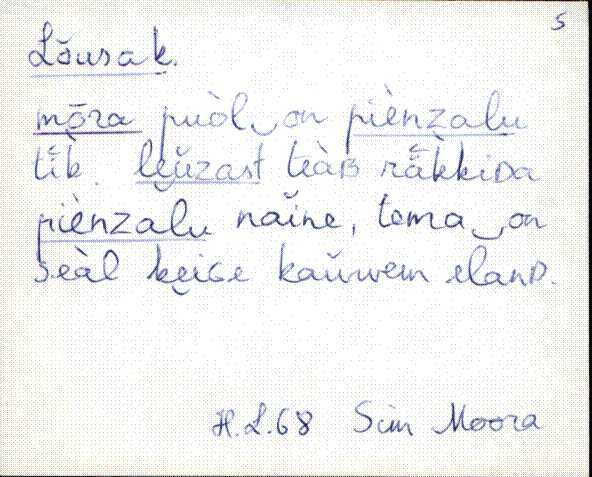 5
Lŏusak.
mōra puòl‿on piènzalu
tīk. lęŭzast teàʙ rǟkkiᴅa
piènzalu naĭne, tema‿on
seàl kęiɢe kaŭwem elanᴅ.
H.L.68 Sim Moora